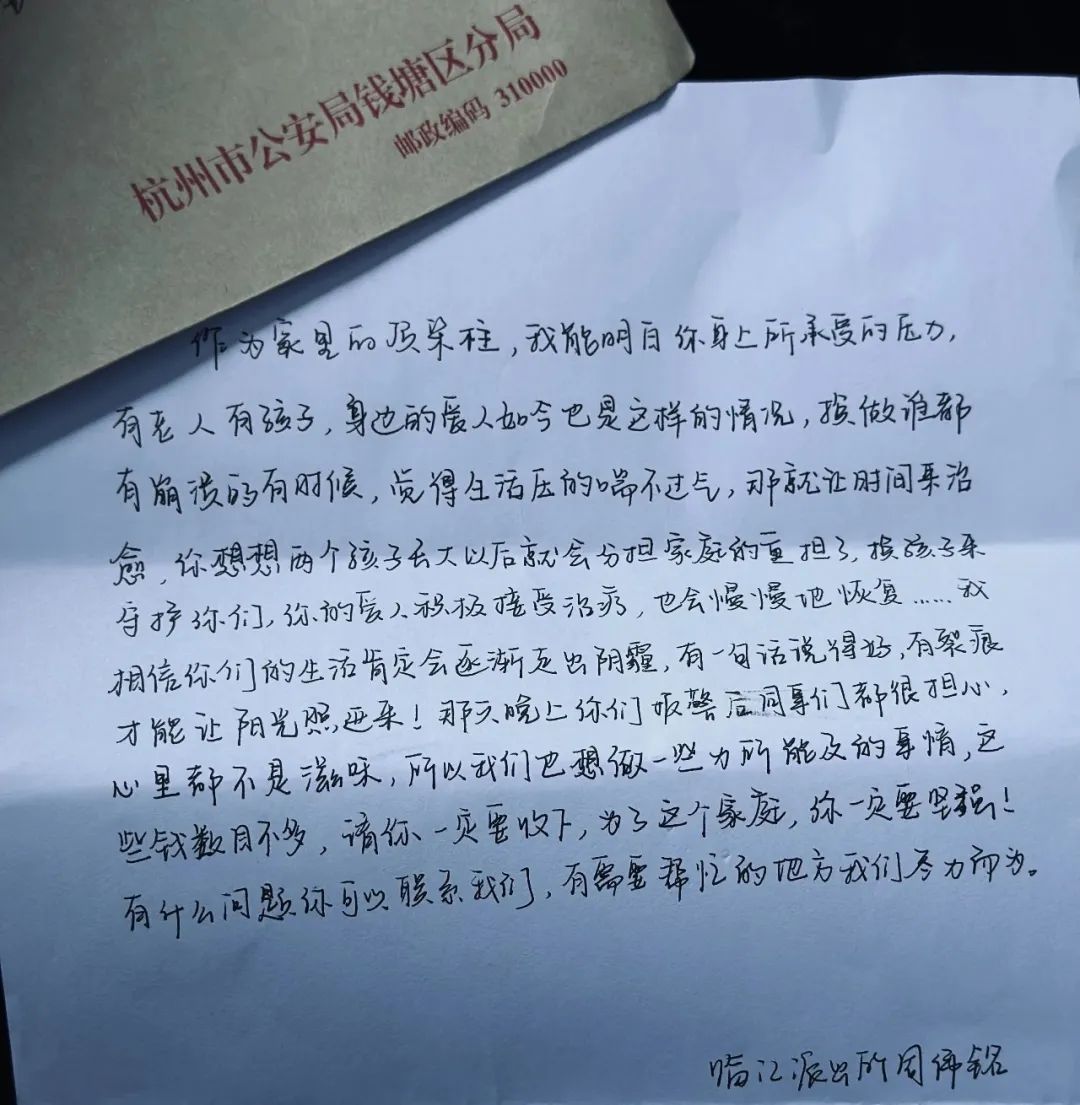 杭州市公安局钱塘区分局
邮政编码 310000
作为家里的顶梁柱，我能明白你身上所承受的压力，
有老人有孩子，身边的爱人如今也是这样的情况，换做谁都
有崩溃的有时候，觉得生活压的喘不过气，那就让时间来治
愈，你想想两个孩子长大以后就会分担家庭的重担了，换孩子来
守护你们，你的爱人积极接受治疗，也会慢慢地恢复……我
相信你们的生活肯定会逐渐走出阴霾，有一句话说得好，有裂痕
才能让阳光照进来！那天晚上你们报警后同事们都很担心，
心里都不是滋味，所以我们也想做一些力所能及的事情，这
些钱数目不多，请你一定要收下，为了这个家庭，你一定要坚强！
有什么问题你可以联系我们，有需要帮忙的地方我们尽力而为。
临江派出所周伟铭